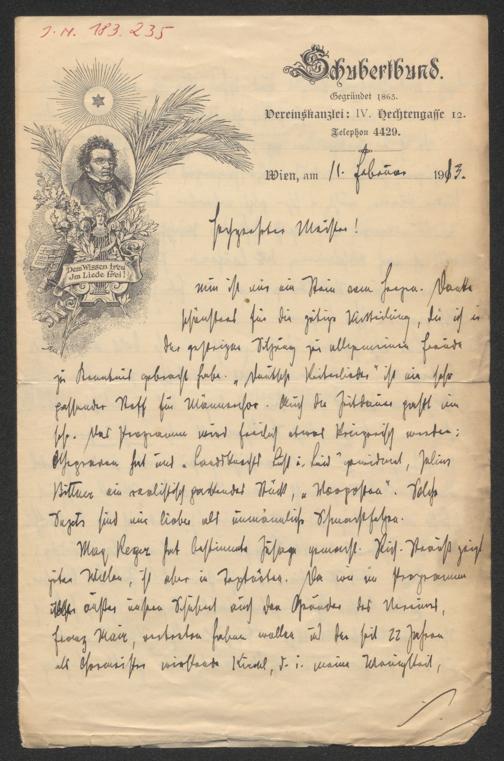 J. N. 183.235
Schubertbund.
Gegründet 1863.
Vereinskanzlei: IV. Hechtengasse 12.
Telephon 4429.
Wien, am 11. Februar 1913.
Dem Wissen treu
Im Liede frei!
Hochgeehrter Meister!
nun ist mir ein Stein vom Herzen. Danke
schönstens für die gütige Mitteilung, die ich in
der gestrigen Sitzung zu allgemeiner Freude
zu Kenntnis gebracht habe. „Deutsche Reiterlieder" ist ein sehr
passender Stoff für Männerchor. Auch die Zeitdauer paßt mir
sehr. Das Programm wird freilich etwas kriegerisch werden:
hat uns „Landsknechts Lust u. Leid" gewidmet, Julius
Bittner ein realistisch packendes Stück, „Vorposten". Solche
sind mir lieber als unmännliche
Max Reger hat bestimmte Zusage gemacht. Rich. Strauß zeigt
guten Willen, ist aber in Da wir im Programm
außer unsern Schubert auch den Gründer des Vereines,
Franz Mair, vertreten haben wollen und der seit 22 Jahren
als Chormeister wirkende Kirchl, d. i. meine Wenigkeit,